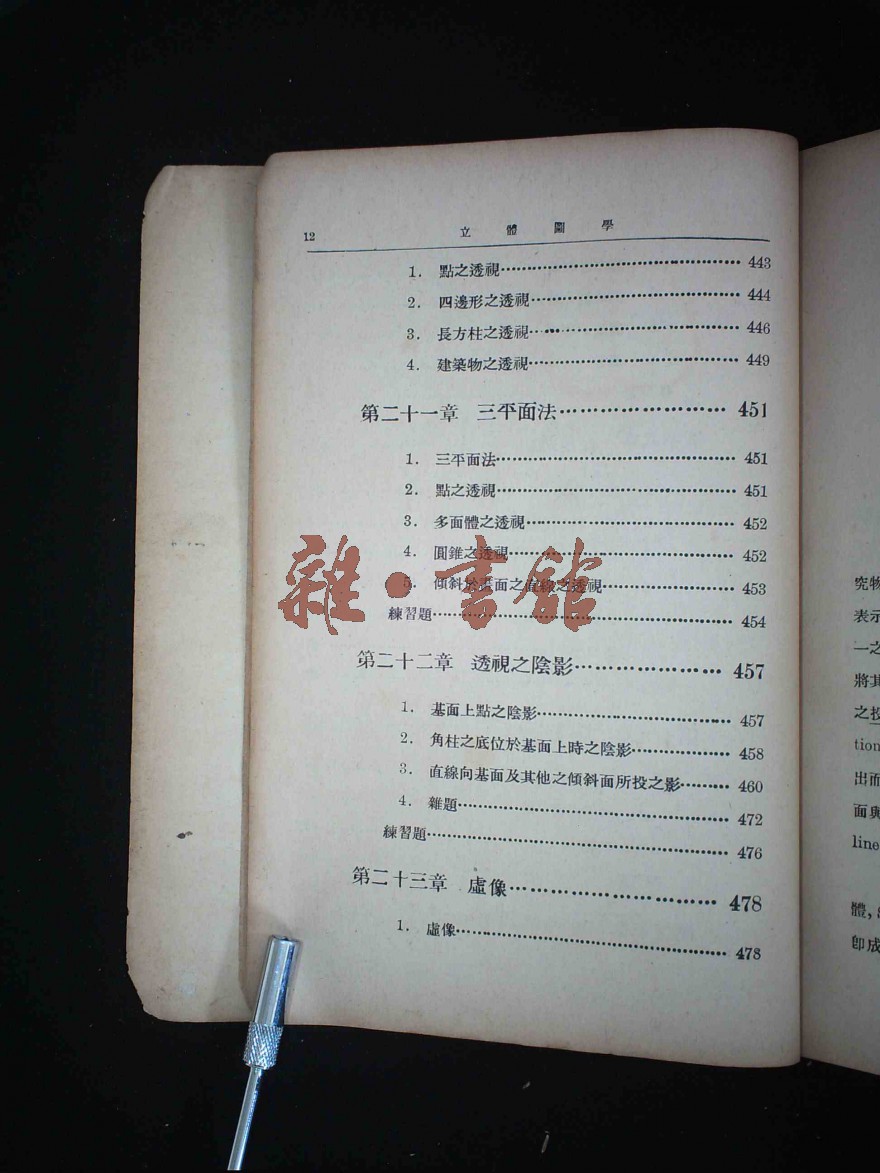 12 立體圖學
1. 點之透視 443
2. 四邊形之透視 444
3. 長方柱之透視 446
4. 建築物之透視 449
第二十一章 三平面法 451
1. 三平面法 451
2. 點之透視 451
3. 多面體之透視 452
4. 圓錐之透視 452
5. 傾斜於畫面之直線之透視 453
練習題 454
第二十二章 透視之陰影 457
1. 基面上點之陰影 457
2. 角柱之底位於基面上時之陰影 458
3. 直線向基面及其他之傾斜面所投之影 460
4. 雜題 472
練習題 476
第二十三章 虛像 478
1. 虛像 478
雜·書館
究物
表示
一之
將其
之投
tion
出而
面與
line
體,
卽成